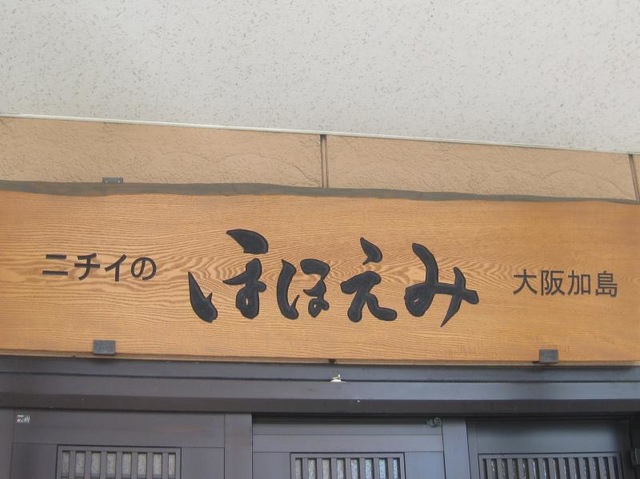 ニチイの ほほえみ 大阪加島